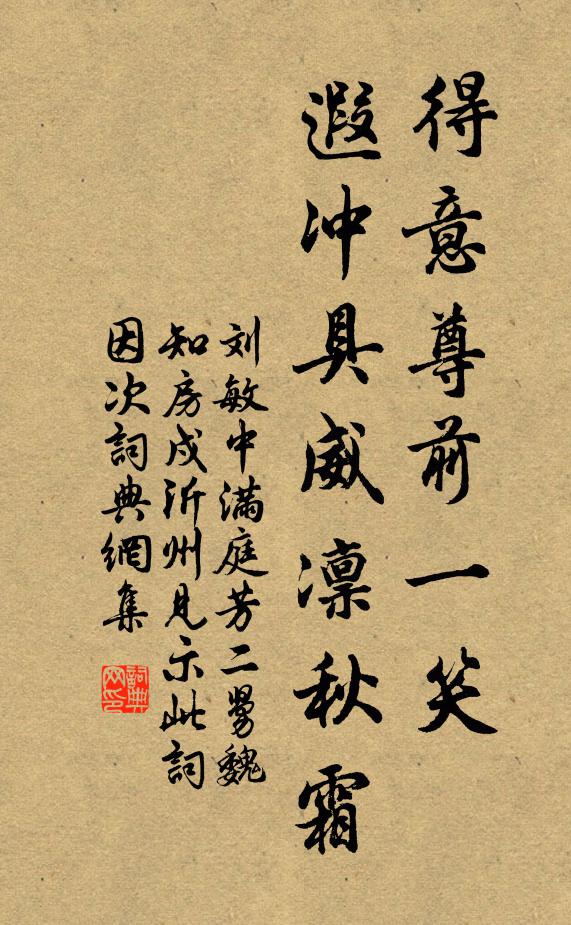 得意尊前一笑
遐冲具威凛秋霜
刘敏中满庭芳二舅魏
知房戍沂州见示此詞
因次詞典網集
詞典
网印